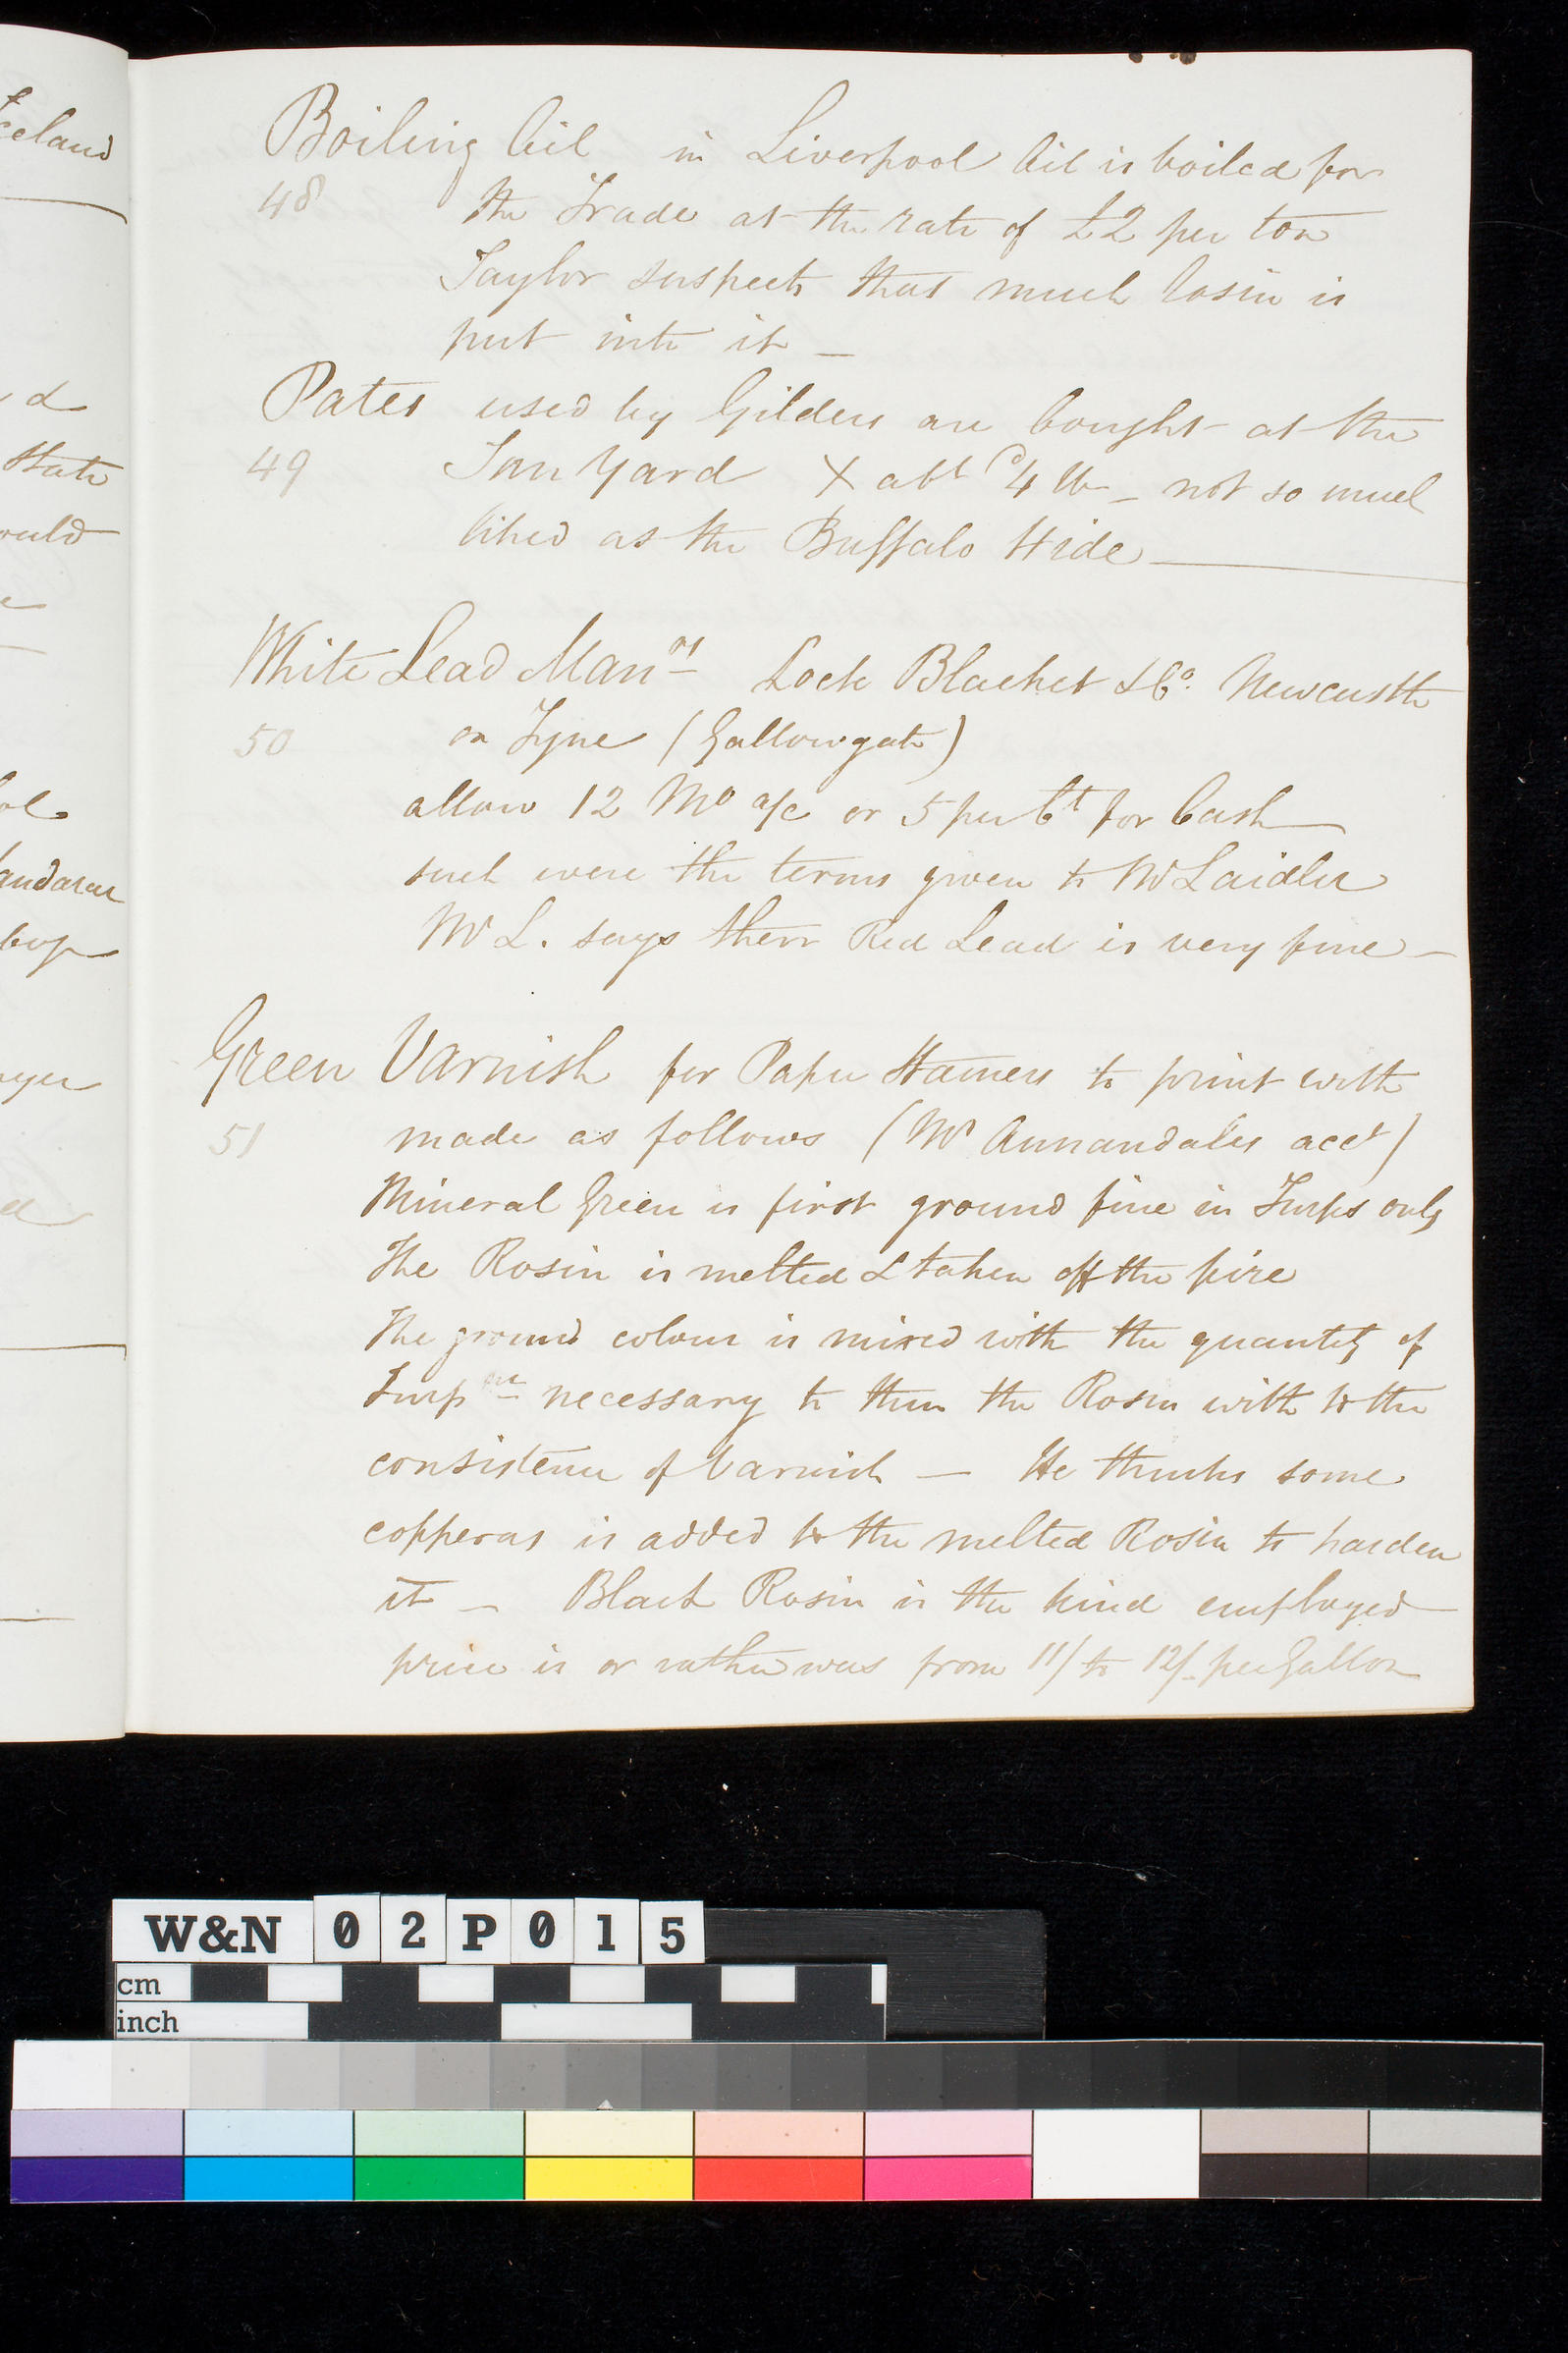 Boiling Oil in Liverpool Oil is boiled for
48 the Trade at the rate of £2 per ton
Taylor suspects that much Rosin is
put into it —
Pates used by Gilders are bought at the
49 Inn Yard X abt 4 lb — not so much
liked as the Buffalo Hide
White Lead Manrs Lock Blacket & Co. Newcastle
50 on Tyne (Gallowgate)
allow 12 Mo a/c or 5 per Ct for Cash
such were the terms given to Mr Laidler
Mr L. says their Red Lead is very fine —
Green Varnish for Paper Stainers to print with
51 made as follows (Mr Annandales acct)
Mineral Green is first ground fine in Turps only
The Rosin is melted & taken off the fire
The ground colour is mixed with the quantity of
Turpne necessary to thin the Rosin with to the
consistence of Varnish — He thinks some
copperas is added to the melted Rosin to harden
it — Black Rosin is the kind employed
price is or rather was from 11/ to 12/- per Gallon
celand
d
state
ould
andarac
W&N 02P015
cm
inch